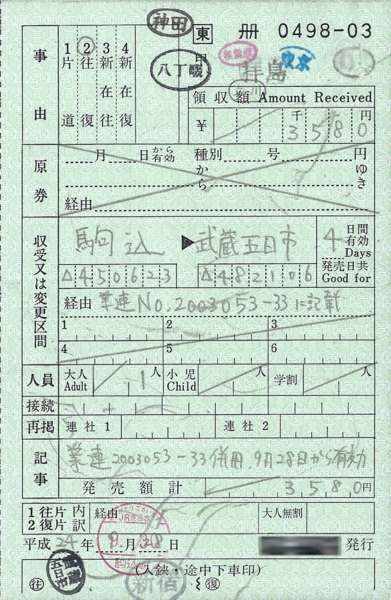 神田
東 冊 0498-03
事由
1 片道
2 往復
3 新在往
4 新在復
八丁畷
拝島
領収額 Amount Received
￥ 千 円
3580
原券
月 日から有効 種別 号 円
から ゆき
経由
収受又は変更区間
駒込 ▶ 武蔵五日市
4日間有効 Days
発売日共 Good for
△450623 △482106
経由 業連No.2003053-33に記載
1 2 3
4 5 6
人員 大人 Adult 1人 小児 Child 人 学割 人
接続
再掲 連社 1 連社 2
記事
業連2003053-33併用.9月28日から有効
発売額計 3580円
1往片 内
2復片 訳
経由 大人無割
平成24年8月30日 発行
JR東日本
駒込
武蔵五日市
(入鋏・途中下車印)
往 復
新宿